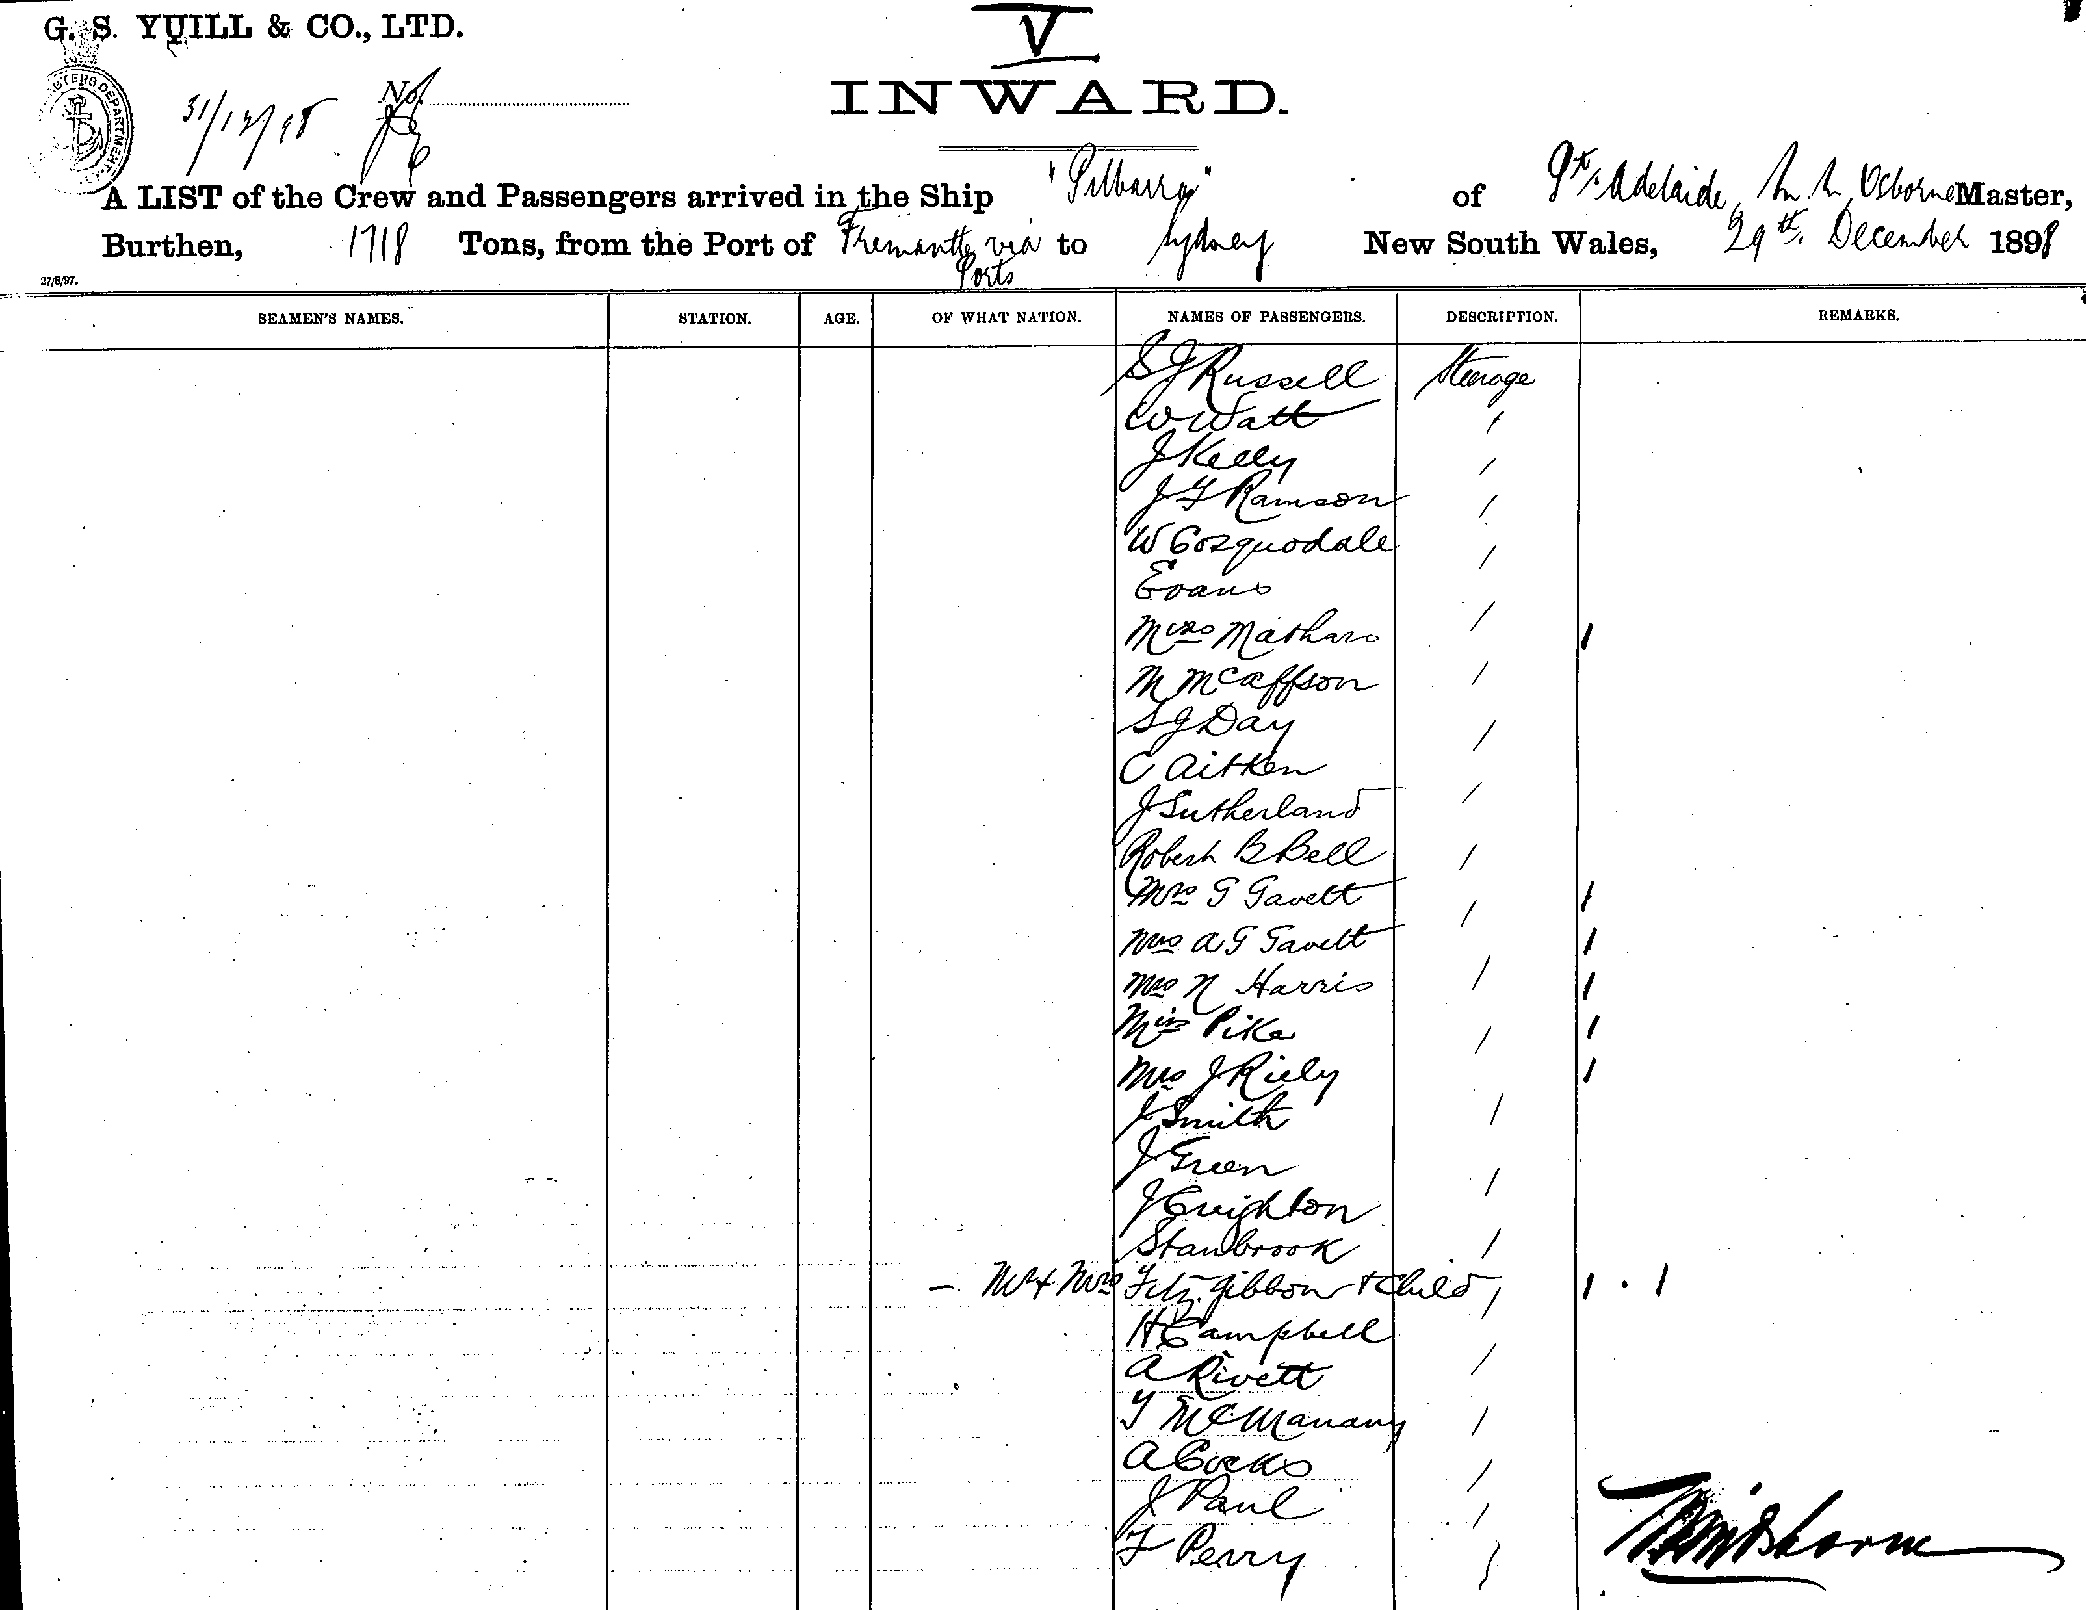 G. S. YUILL & CO., LTD.
V
INWARD.
31/12/98 No.
A LIST of the Crew and Passengers arrived in the Ship "Pilbarra" of Pt. Adelaide, Osborne Master,
Burthen, 1718 Tons, from the Port of Fremantle via Ports to Sydney New South Wales, 29th. December 1898
27/8/97.
SEAMEN'S NAMES. STATION. AGE. OF WHAT NATION. NAMES OF PASSENGERS. DESCRIPTION. REMARKS.
S J Russell Steerage
W Watt
J Kelly
J F Ramson
W Cosquodale
Evans
Miss
M McCaffson
S J Day
C Aitken
J Sutherland
Robert B Bell
Mrs G Gavett
Mrs A G Gavett
Mrs N Harris
Miss Pike
Mrs J Riely
J Smith
J Green
J Creighton
Stanbrook
Mr & Mrs Fitzgibbon & Child
H Campbell
A Rivett
T McManany
A Cocks
J Paul
F Perry